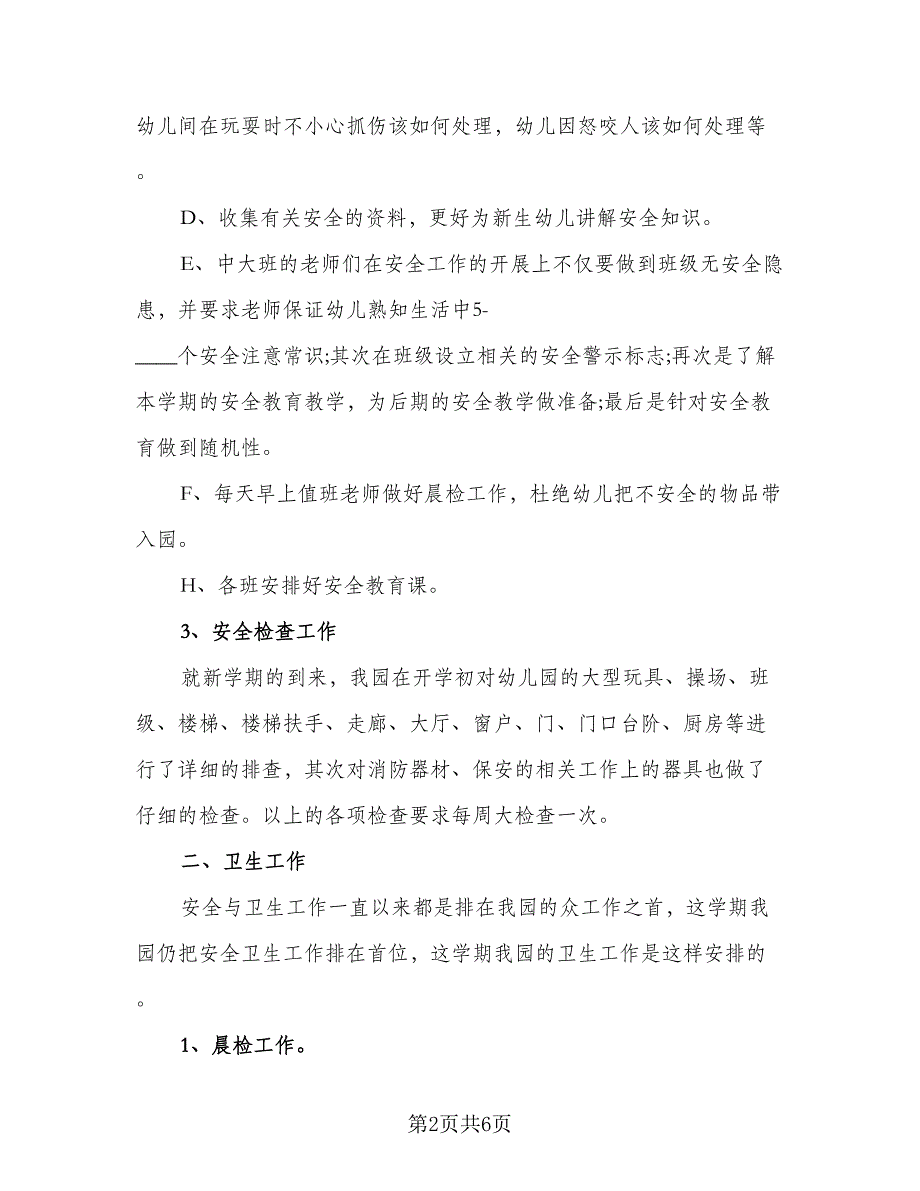 幼儿间在玩耍时不小心抓伤该如何处理，幼儿因怒咬人该如何处理等
。
D、收集有关安全的资料，更好为新生幼儿讲解安全知识。
E、中大班的老师们在安全工作的开展上不仅要做到班级无安全隐
患，并要求老师保证幼儿熟知生活中5-
____个安全注意常识;其次在班级设立相关的安全警示标志;再次是了解
本学期的安全教育教学，为后期的安全教学做准备;最后是针对安全教
育做到随机性。
F、每天早上值班老师做好晨检工作，杜绝幼儿把不安全的物品带
入园。
H、各班安排好安全教育课。
3、安全检查工作
就新学期的到来，我园在开学初对幼儿园的大型玩具、操场、班
级、楼梯、楼梯扶手、走廊、大厅、窗户、门、门口台阶、厨房等进
行了详细的排查，其次对消防器材、保安的相关工作上的器具也做了
仔细的检查。以上的各项检查要求每周大检查一次。
二、卫生工作
安全与卫生工作一直以来都是排在我园的众工作之首，这学期我
园仍把安全卫生工作排在首位，这学期我园的卫生工作是这样安排的
。
1、晨检工作。
第2页共6页